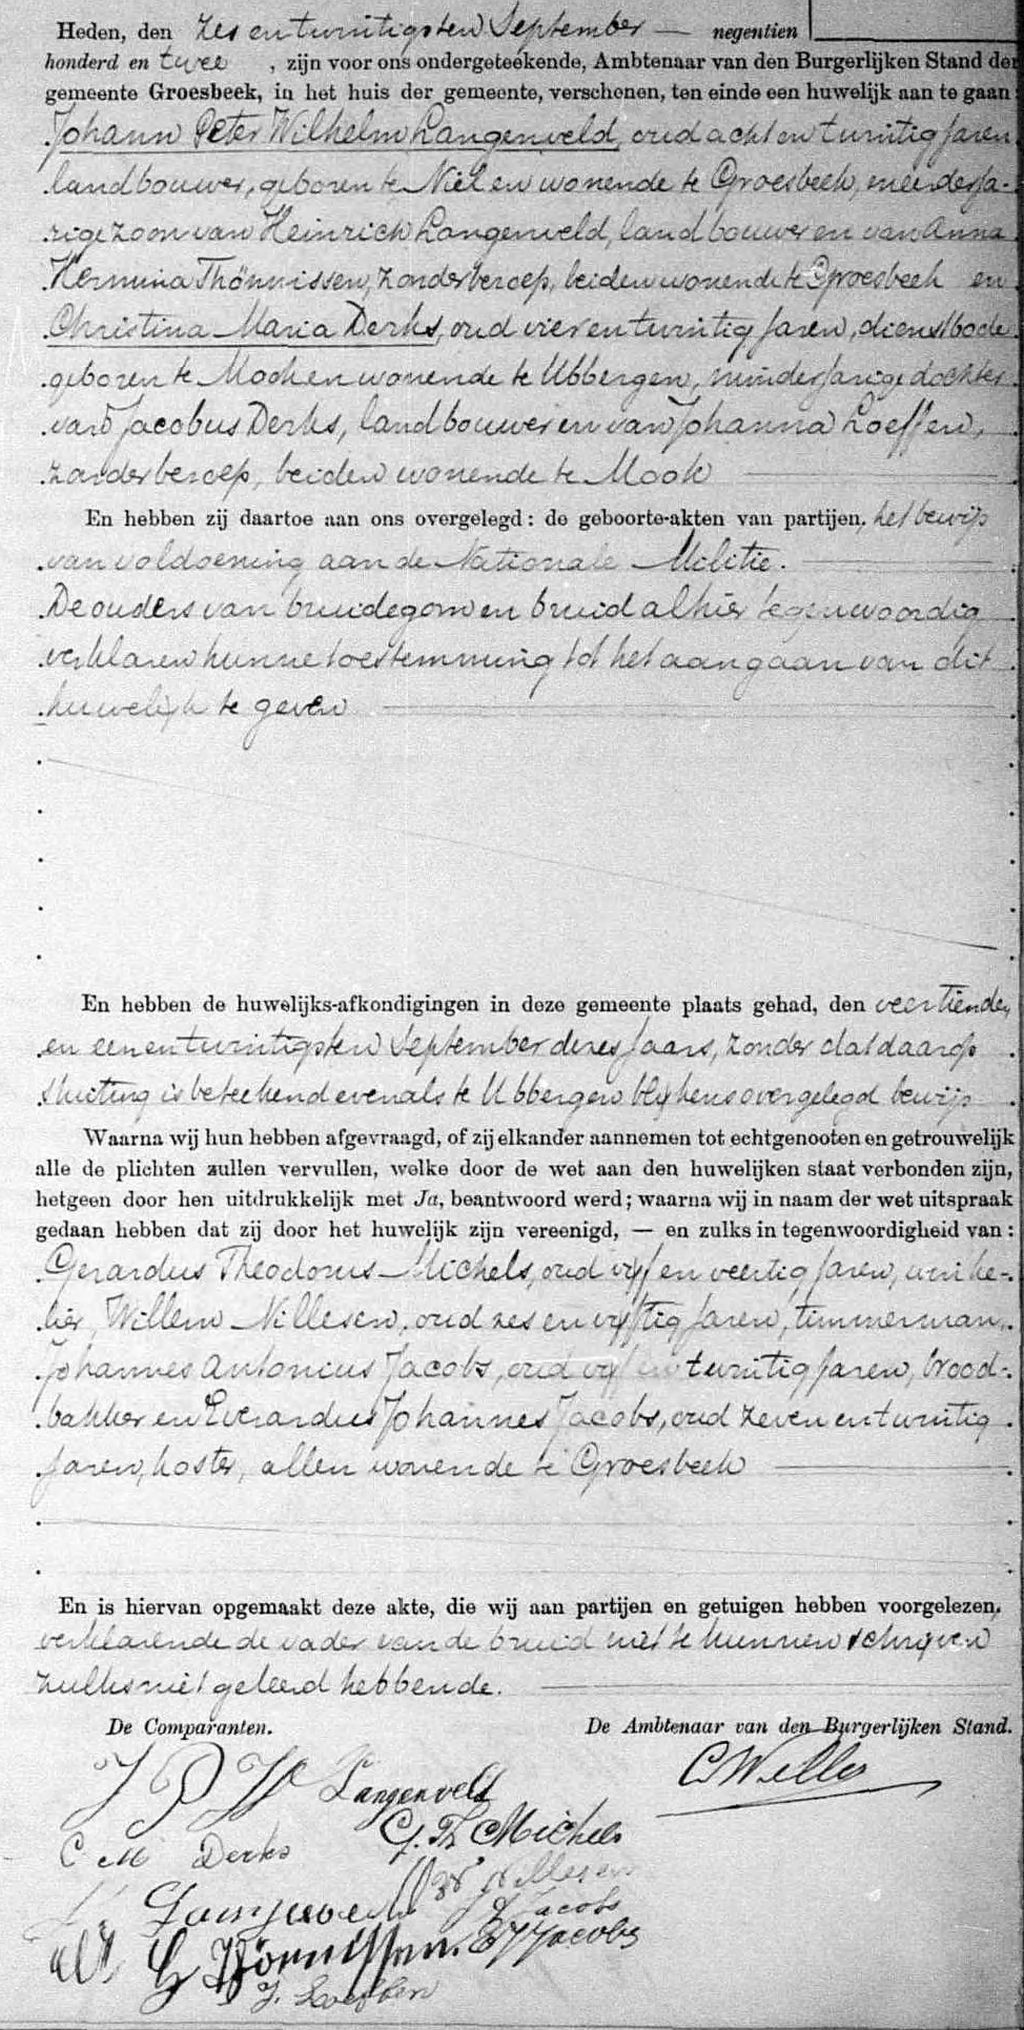 Heden, den zes en twintigsten September — negentien
honderd en twee , zijn voor ons ondergeteekende, Ambtenaar van den Burgerlijken Stand der
gemeente Groesbeek, in het huis der gemeente, verschenen, ten einde een huwelijk aan te gaan
Johann Peter Wilhelm Langenveld, oud acht en twintig jaren
landbouwer, geboren te Niel en wonende te Groesbeek, meerderja-
rige zoon van Heinrich Langenveld, landbouwer en van Anna
Hermina Thönnissen, zonder beroep, beiden wonende te Groesbeek en
Christina Maria Derks, oud vier en twintig jaren, dienstbode
geboren te Mook en wonende te Ubbergen, minderjarige dochter
van Jacobus Derks, landbouwer en van Johanna Loeffen,
zonder beroep, beiden wonende te Mook
En hebben zij daartoe aan ons overgelegd: de geboorte-akten van partijen, het bewijs
van voldoening aan de Nationale Militie.
De ouders van bruidegom en bruid alhier tegenwoordig
verklaren hunne toestemming tot het aangaan van dit
huwelijk te geven
En hebben de huwelijks-afkondigingen in deze gemeente plaats gehad, den veertienden
en een en twintigsten September dezes jaars, zonder dat daarop
stuiting is beteekend evenals te Ubbergen blijkens overgelegd bewijs
Waarna wij hun hebben afgevraagd, of zij elkander aannemen tot echtgenooten en getrouwelijk
alle de plichten zullen vervullen, welke door de wet aan den huwelijken staat verbonden zijn,
hetgeen door hen uitdrukkelijk met Ja, beantwoord werd; waarna wij in naam der wet uitspraak
gedaan hebben dat zij door het huwelijk zijn vereenigd, — en zulks in tegenwoordigheid van:
Gerardus Theodorus Michels, oud vijf en veertig jaren, winke-
lier, Willem Nillesen, oud zes en vijftig jaren, timmerman,
Johannes Antonius Jacobs, oud vijf en twintig jaren, brood-
bakker en Everardus Johannes Jacobs, oud zeven en twintig
jaren, koster, allen wonende te Groesbeek
En is hiervan opgemaakt deze akte, die wij aan partijen en getuigen hebben voorgelezen,
verklarende de vader van de bruid niet te kunnen schrijven
zulks niet geleerd hebbende.
De Comparanten. De Ambtenaar van den Burgerlijken Stand.
J P W Langenveld
C M Derks G. Th Michels
W Nillesen
Langeveld J A Jacobs
Thönnissen. E J Jacobs
J. Loeffen